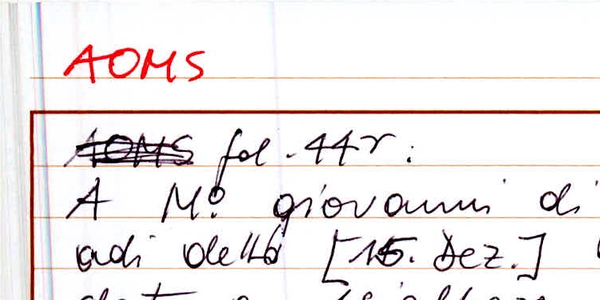 AOMS
AOMS fol. 44r:
A M.o giovanni di
adi detto [15. Dez.]